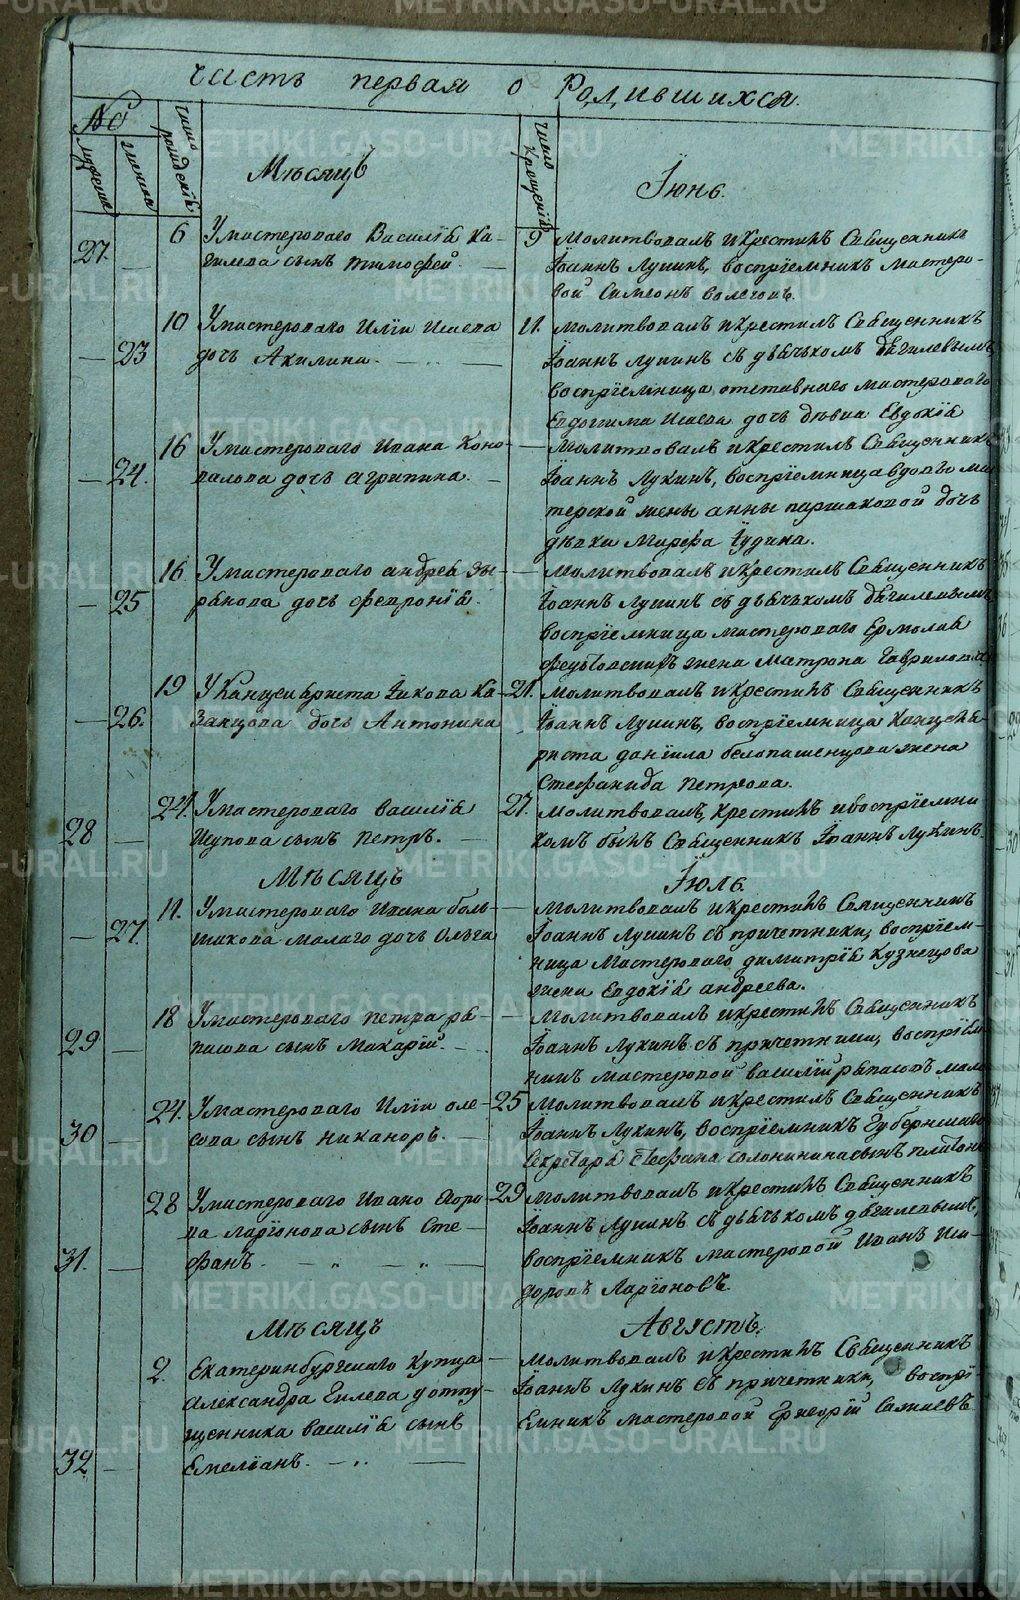 Часть первая о Родившихся.
№
мужеска
женска
число рождения
Мѣсяцъ
число крещенія
Іюнь.
27.
6
У мастероваго Василія Ка-
гилева сынъ Тимофей.
9
Молитвовалъ и крестилъ Священникъ
Іоаннъ Лукинъ, воспріемникъ мастеро-
вой Симеонъ
23
10
У мастероваго Иліи Исаева
дочь Акилина.
11.
Молитвовалъ и крестилъ Священникъ
Іоаннъ Лукинъ съ дьячькомъ Дягилевымъ
воспріемница отставнаго мастероваго
Евдокима Исаева дочь дѣвица Евдокія
24.
16
У мастероваго Ивана Коно-
валова дочь Агрипина.
Молитвовалъ и крестилъ Священникъ
Іоаннъ Лукинъ, воспріемница вдовы мас
терской жены Анны дочь
дѣвка Марфа Іудина.
25
16
У мастероваго Андрея Зы-
рянова дочь Февронія.
Молитвовалъ и крестилъ Священникъ
Іоаннъ Лукинъ съ дьячькомъ Дягилевымъ
воспріемница мастероваго Ермолая
жена Матрона Гаврилова
26.
19
У Канцеляриста Іакова Ка-
занцова дочь Антонина
21.
Молитвовалъ и крестилъ Священникъ
Іоаннъ Лукинъ, воспріемница Канцеля-
риста Даніила Белопашенцова жена
Стефанида Петрова.
28
24.
У мастероваго Василія
Шупова сынъ Петръ.
27.
Молитвовалъ, крестилъ и воспріемни
комъ былъ Священникъ Іоаннъ Лукинъ.
Мѣсяцъ
Іюль.
27.
11.
У мастероваго Ивана Боль-
шакова Малаго дочь Ольга
Молитвовалъ и крестилъ Священникъ
Іоаннъ Лукинъ съ причетники, воспріем-
ница мастероваго Димитрія Кузнецова
жена Евдокія Андреева.
29
18
У мастероваго Петра Ря-
писова сынъ Макарій.
Молитвовалъ и крестилъ Священникъ
Іоаннъ Лукинъ съ причетники, воспріем
никъ мастеровой Василій
30
24.
У мастероваго Иліи Оле-
сова сынъ Никаноръ.
25
Молитвовалъ и крестилъ Священникъ
Іоаннъ Лукинъ, воспріемникъ Губернскаго
Секретаря Стефана Солонинина сынъ Платонъ
31.
28
У мастероваго Ивана Сидоро-
ва Ларіонова сынъ Сте-
фанъ.
29
Молитвовалъ и крестилъ Священникъ
Іоаннъ Лукинъ съ дьячькомъ Дягилевымъ,
воспріемникъ мастеровой Иванъ Иси-
доровъ Ларіоновъ.
Мѣсяцъ
Августъ.
32
2.
Екатеринбургскаго Купца
Александра Еилева у отпу-
щенника Василія сынъ
Емеліанъ.
Молитвовалъ и крестилъ Священникъ
Іоаннъ Лукинъ съ причетники, воспрі
емникъ мастеровой Григорій
METRIKI.GASO-URAL.RU